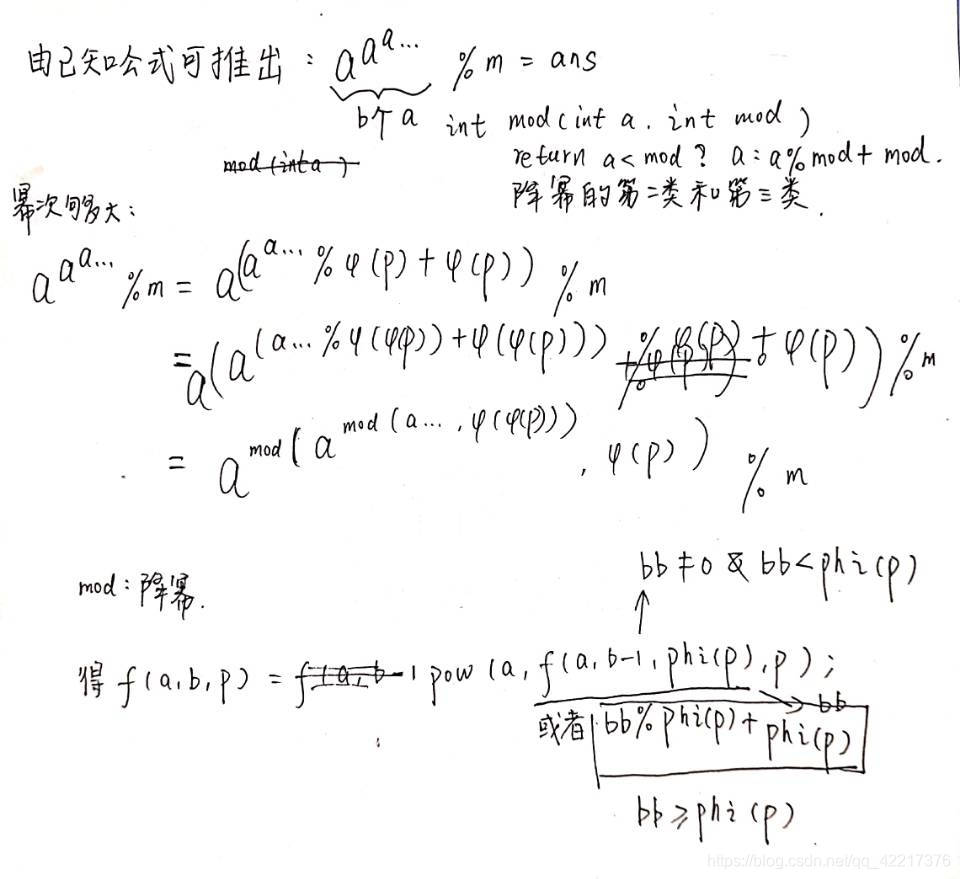 由已知公式可推出：a^a^a... % m = ans
b个a
int mod(int a, int mod)
return a<mod? a:a%mod+mod.
降幂的第二类和第三类.
mod(int a)
幂次够多大：
a^a^a... %m = a^(a^a... %φ(p)+φ(p)) % m
=a^(a^(a... %φ(φ(p))+φ(φ(p))) +φ(p)) %m
= a^mod(a^mod(a..., φ(φ(p))), φ(p)) % m
bb≠0 & bb<phi(p)
mod：降幂.
得 f(a,b,p) = f(a,b-1 pow(a, f(a,b-1,phi(p),p);
bb
或者 bb%phi(p)+phi(p)
bb≥phi(p)
https://blog.csdn.net/qq_42217376